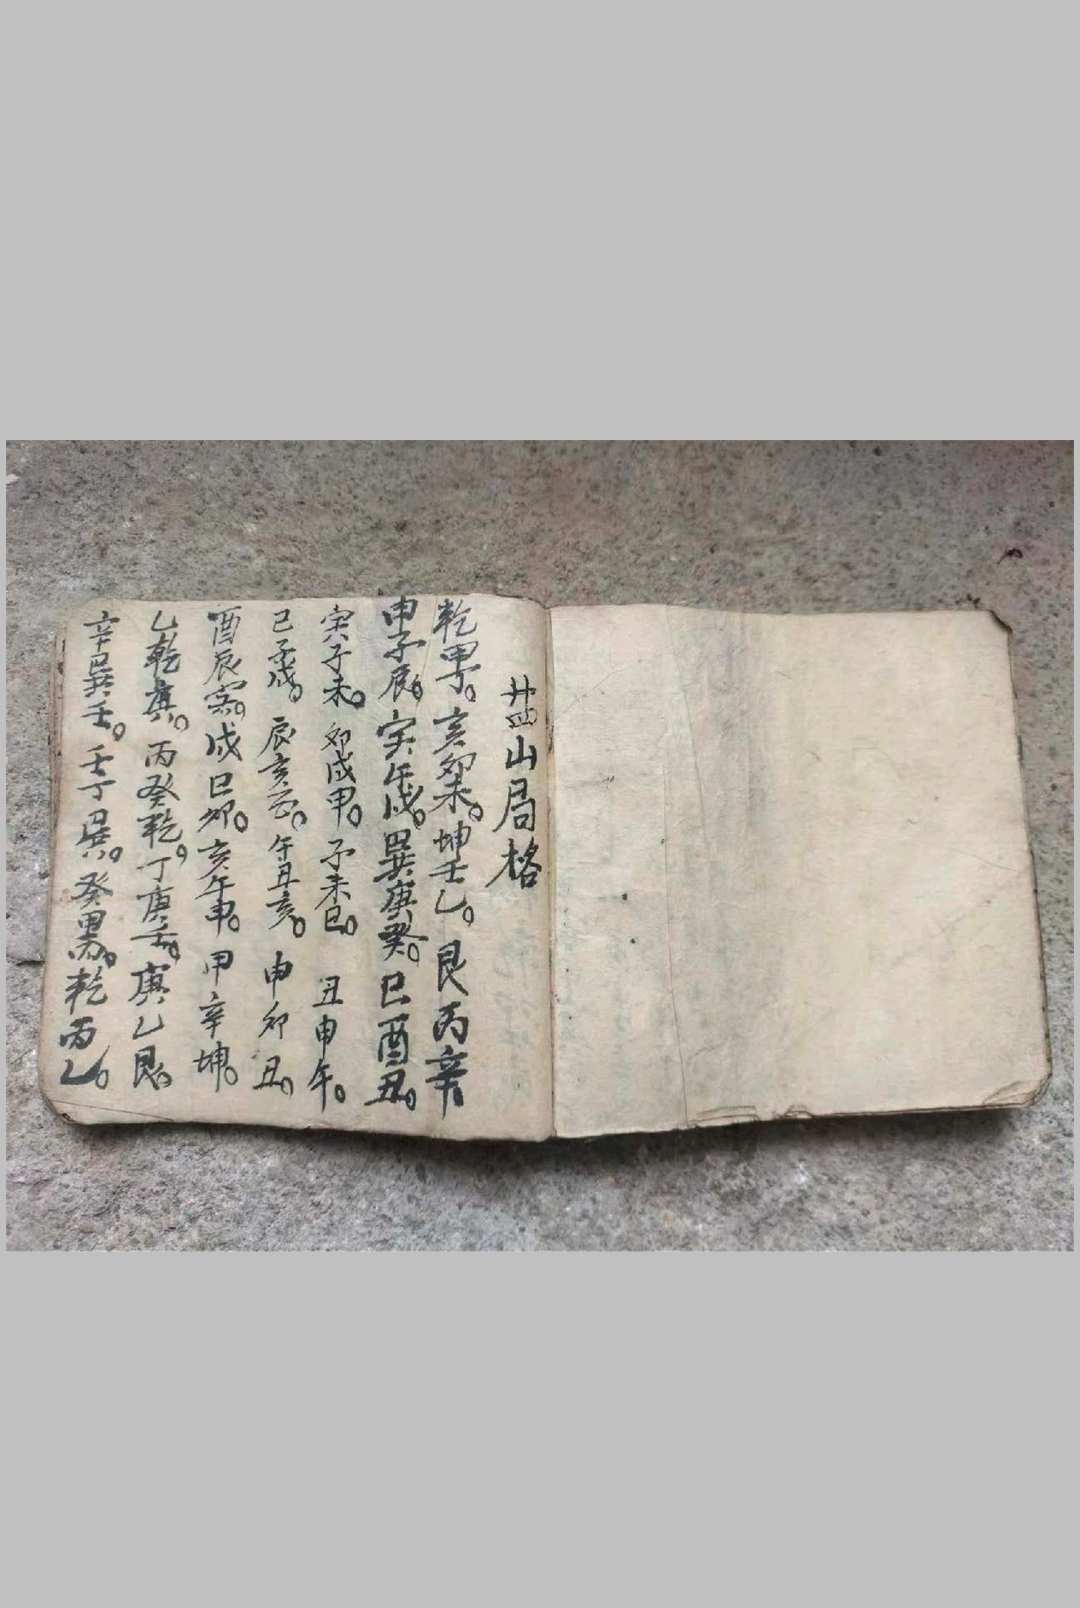 廿四山局格
乾甲丁。亥卯未。坤壬乙。艮丙辛。
申子辰。寅午戌。巽庚癸。巳酉丑。
寅子未。卯戌甲。子未巳。丑申午。
巳子戌。辰亥。午丑亥。申卯丑。
酉辰寅。戌巳卯。亥午申。甲辛坤。
乙乾庚。丙癸乾。丁庚壬。庚乙艮。
辛巽壬。壬丁巽。癸甲。乾丙乙。